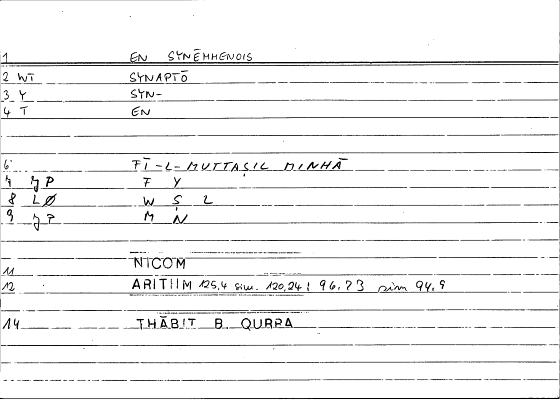 1 EN SYNĒMMENOIS
2 WT SYNAPTŌ
3 Y SYN-
4 T EN
6 FĪ-L-MUTTAṢIL MINHĀ
7 YP F Y
8 LØ W Ṣ L
9 YP M N
11 NICOM
12 ARITHM 125,4 sim. 120,24; 96,23 sim 94,9
14 THĀBIT B. QURRA